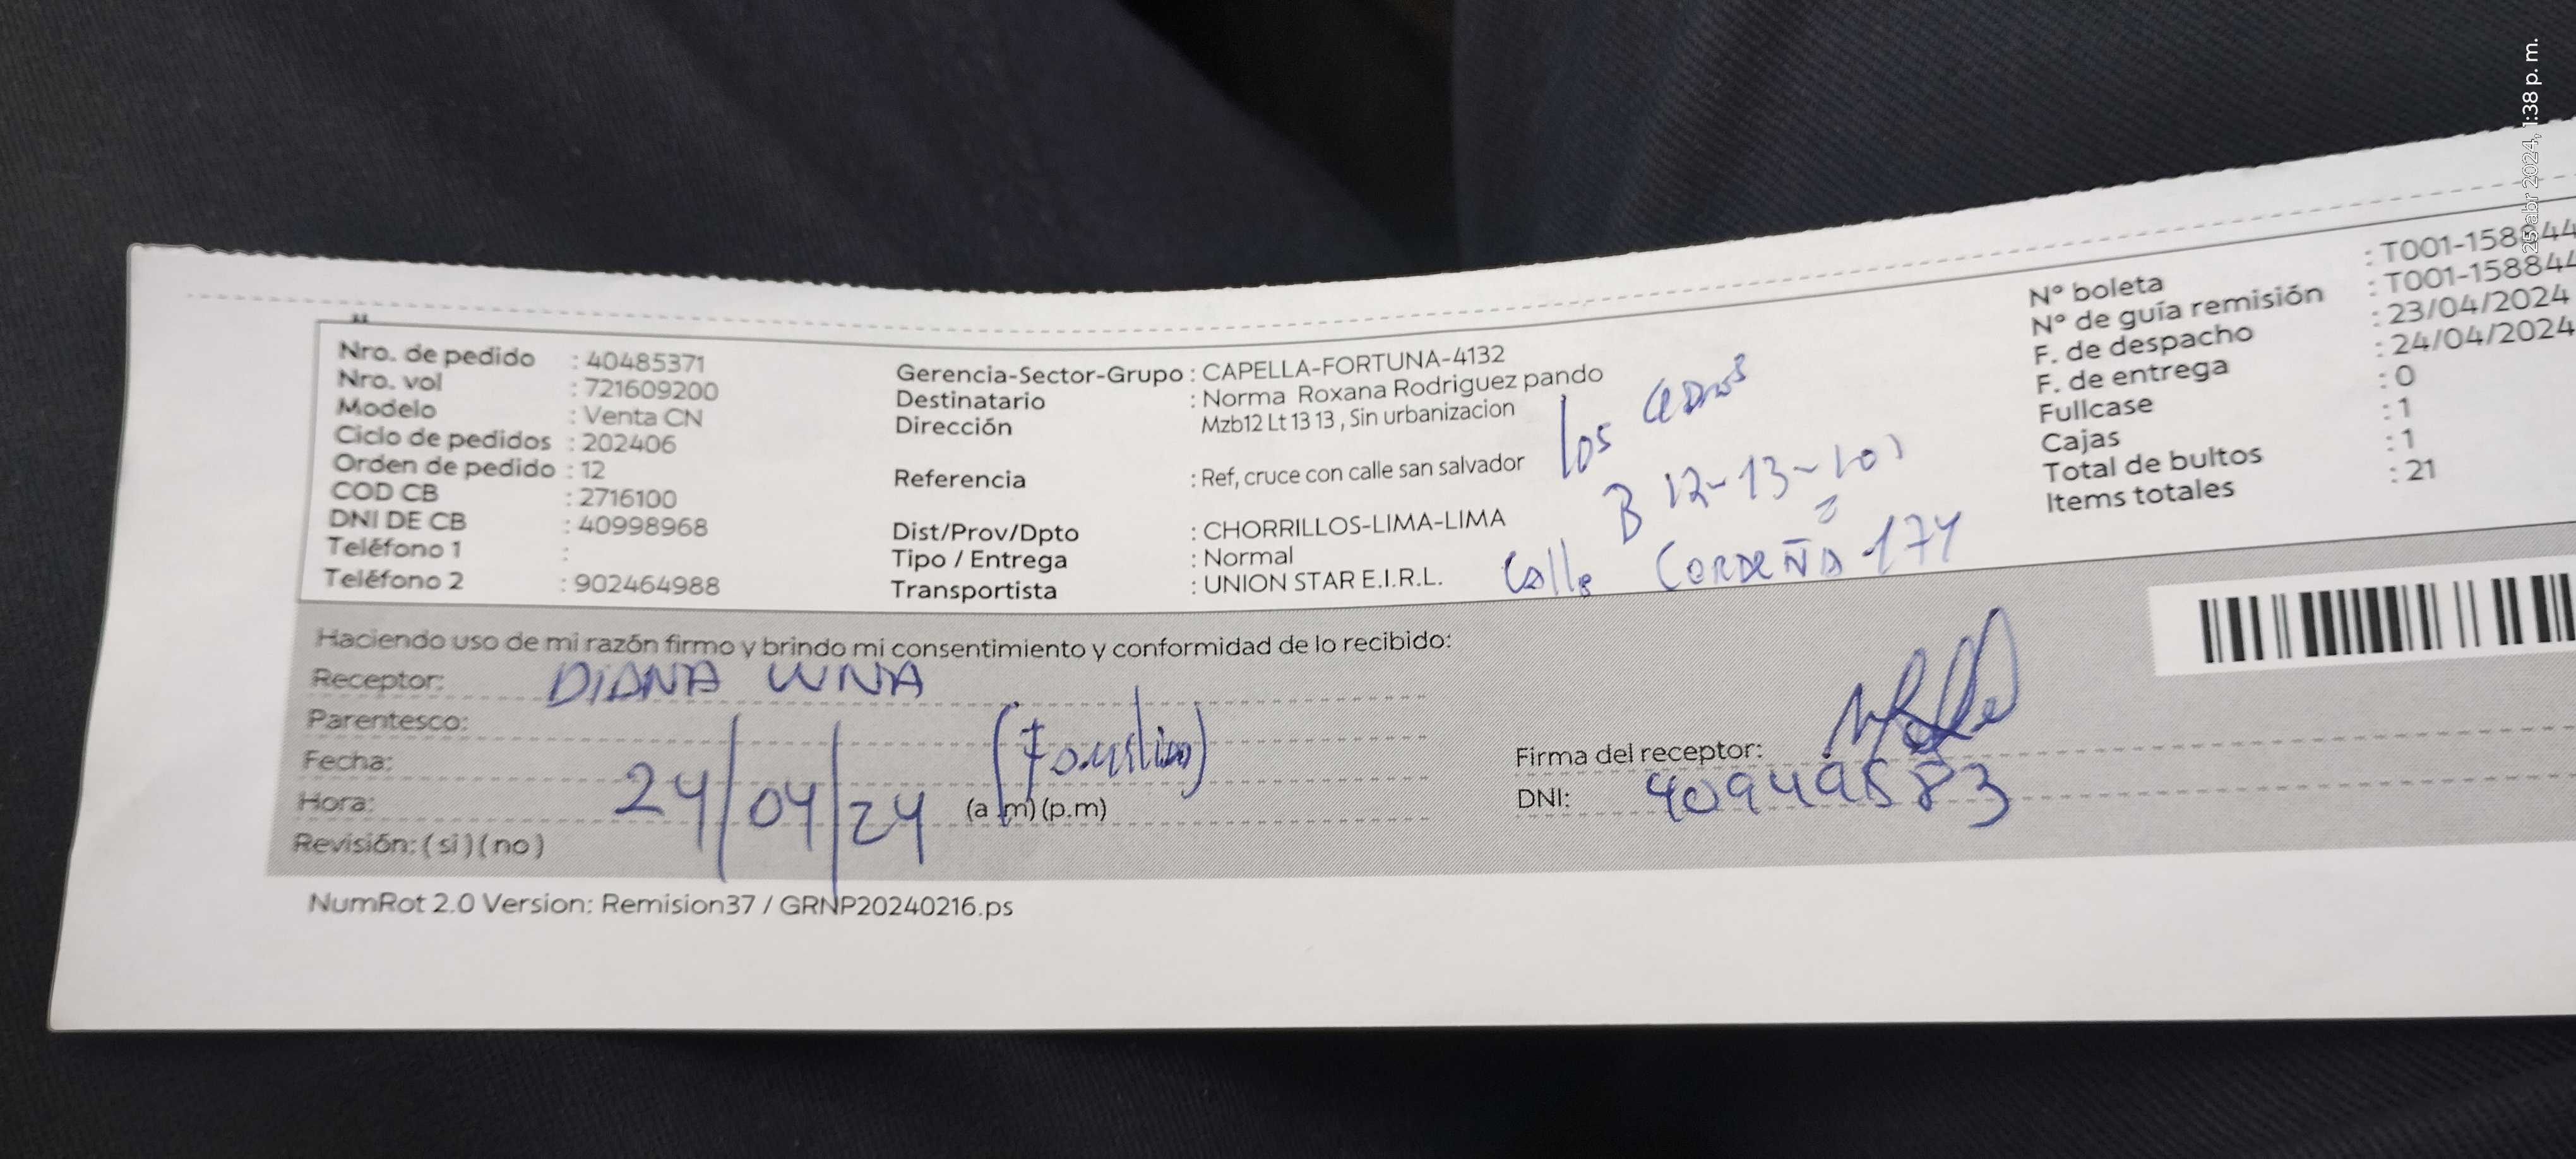 25 abr 2024, 1:38 p. m.
Nro. de pedido : 40485371
Nro. vol : 721609200
Modelo : Venta CN
Ciclo de pedidos : 202406
Orden de pedido : 12
COD CB : 2716100
DNI DE CB : 40998968
Teléfono 1 :
Teléfono 2 : 902464988
Gerencia-Sector-Grupo : CAPELLA-FORTUNA-4132
Destinatario : Norma Roxana Rodriguez pando
Dirección Mzb12 Lt 13 13 , Sin urbanizacion
Referencia : Ref, cruce con calle san salvador
Dist/Prov/Dpto : CHORRILLOS-LIMA-LIMA
Tipo / Entrega : Normal
Transportista : UNION STAR E.I.R.L.
los cedros
B 12-13-101
Calle CORDEÑA 174
Nº boleta : T001-158844
Nº de guía remisión : T001-158844
F. de despacho : 23/04/2024
F. de entrega : 24/04/2024
Fullcase : 0
Cajas : 1
Total de bultos : 1
Items totales : 21
Haciendo uso de mi razón firmo y brindo mi consentimiento y conformidad de lo recibido:
Receptor: DIANA LUNA
Parentesco: (Familiar)
Fecha: 24/04/24
Hora: (a .m) (p.m)
Revisión: ( si ) ( no )
Firma del receptor:
DNI: 40949583
NumRot 2.0 Version: Remision37 / GRNP20240216.ps